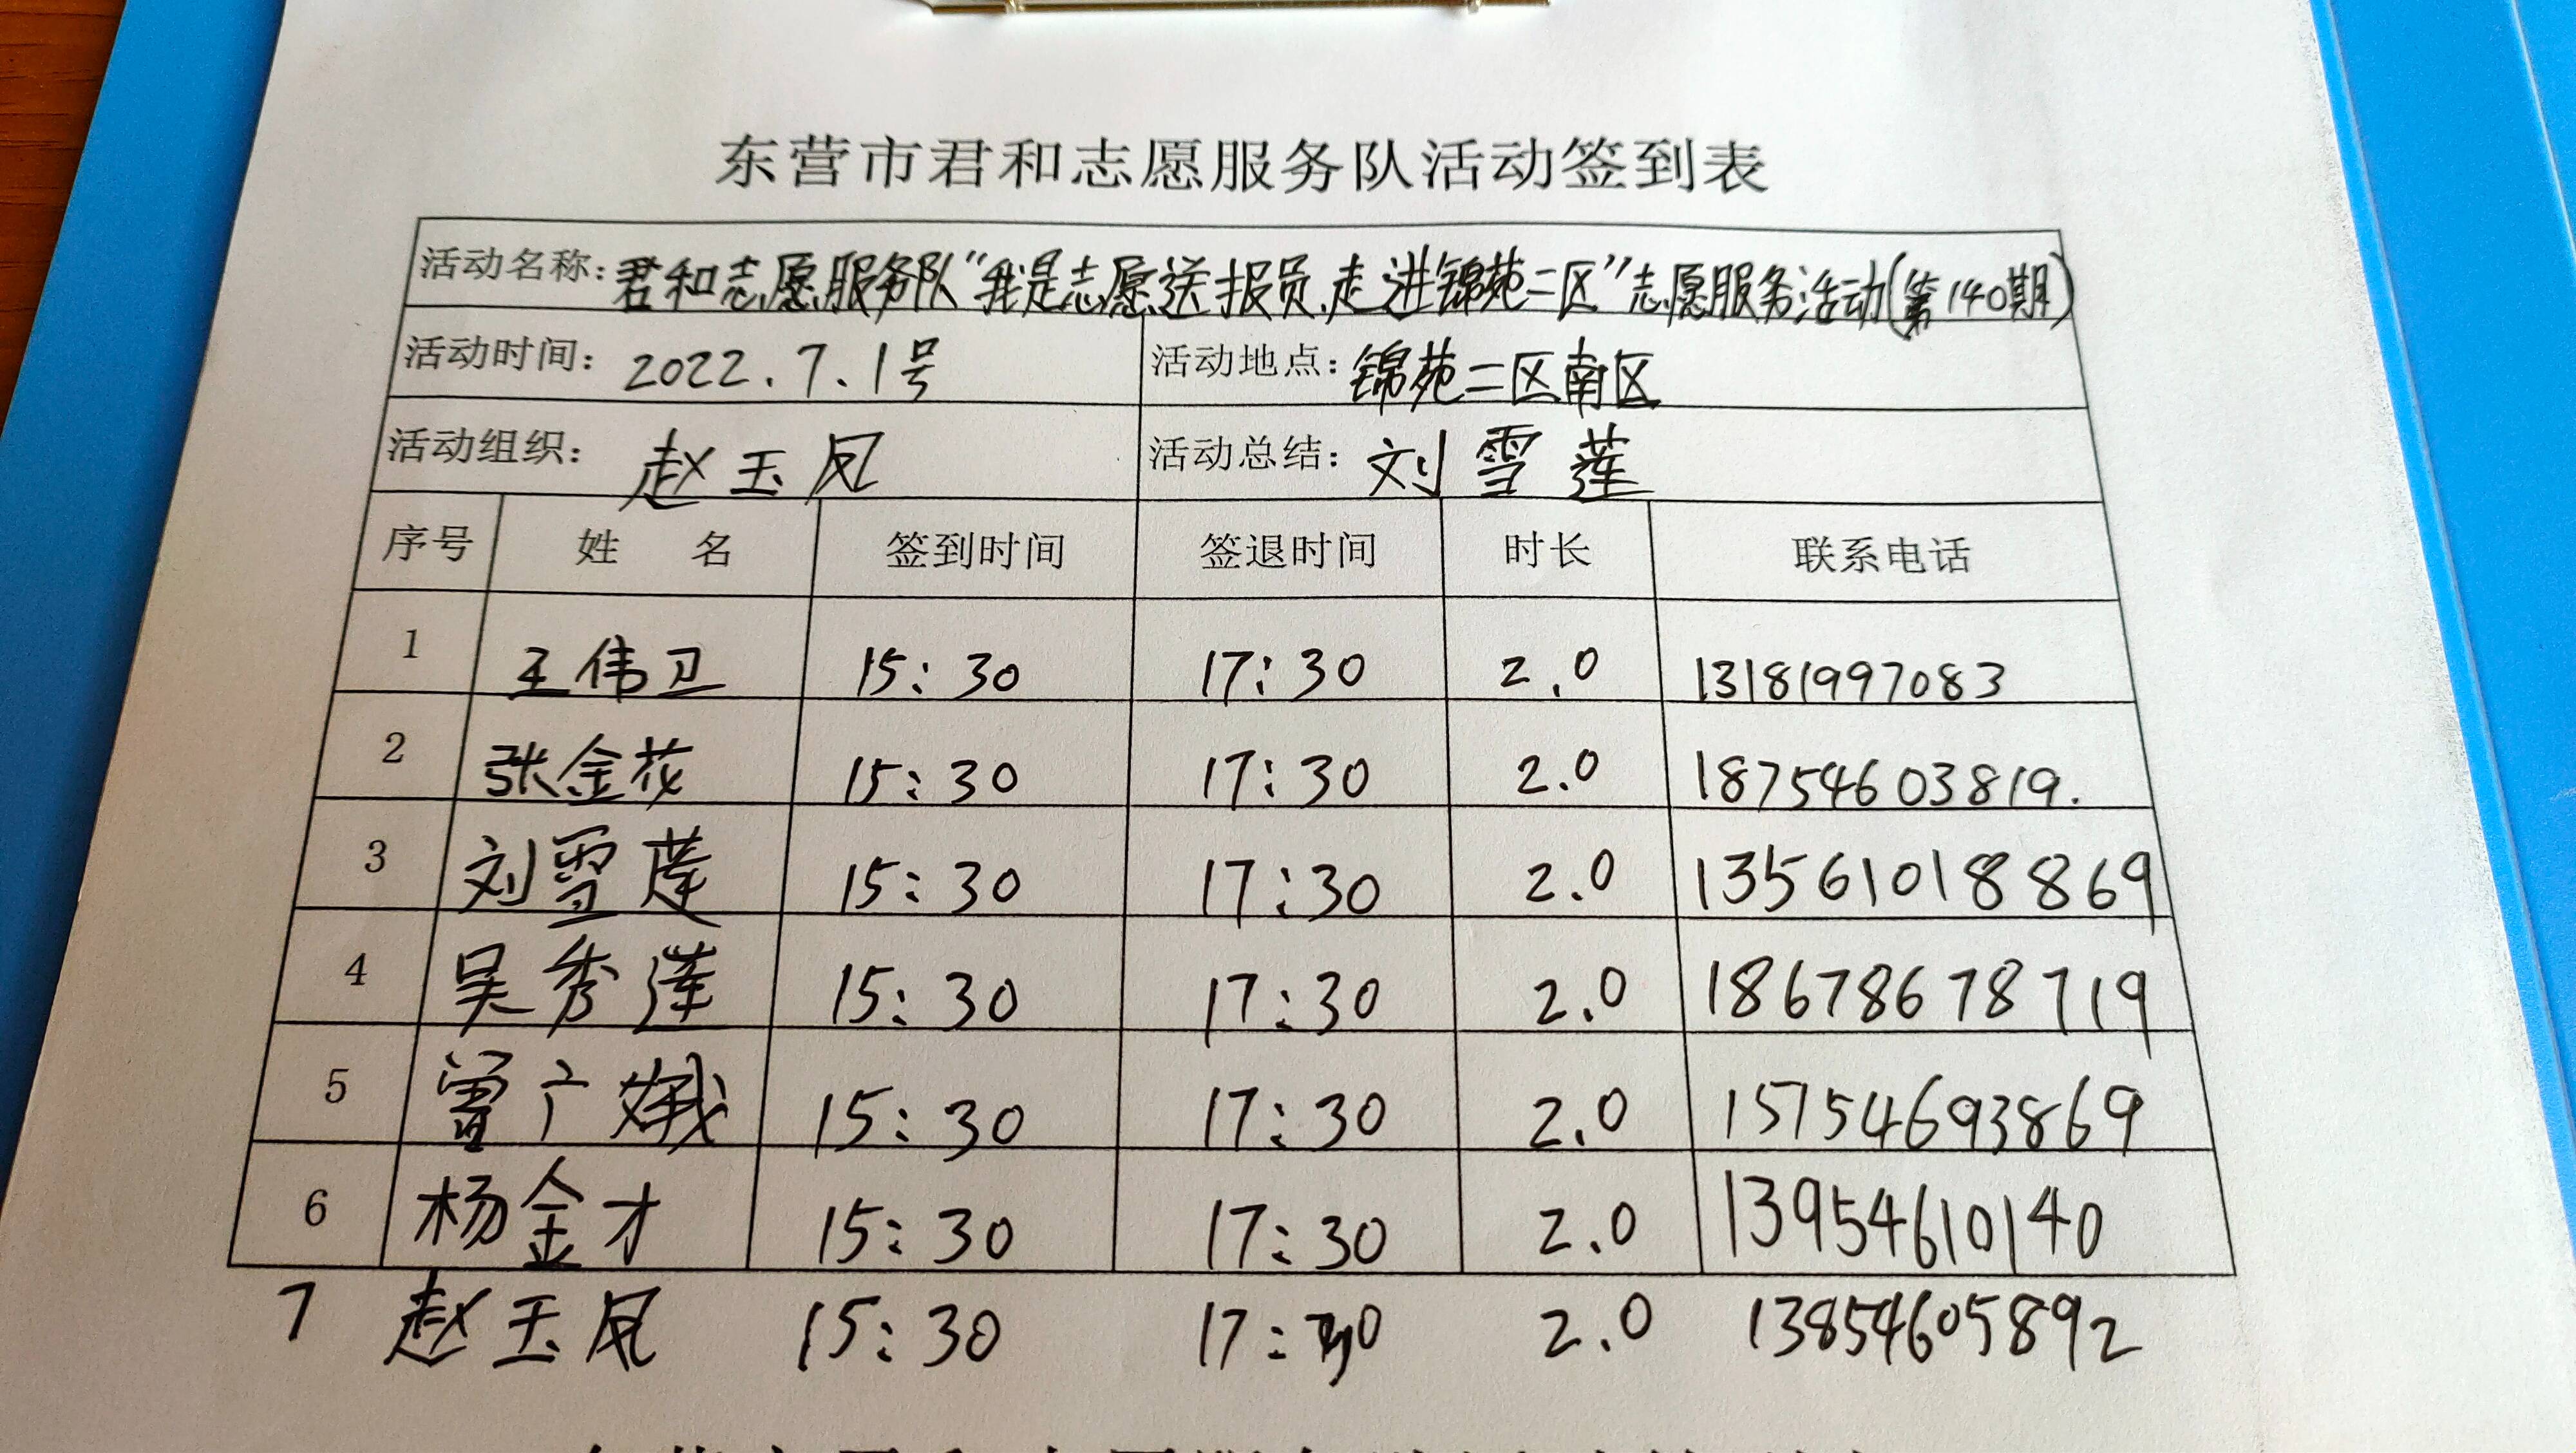 东营市君和志愿服务队活动签到表
活动名称：君和志愿服务队“我是志愿送报员，走进锦苑二区”志愿服务活动（第140期）
活动时间：2022.7.1号 活动地点：锦苑二区南区
活动组织：赵玉凤 活动总结：刘雪莲
序号 姓名 签到时间 签退时间 时长 联系电话
1 王伟卫 15:30 17:30 2.0 13181997083
2 张金花 15:30 17:30 2.0 18754603819.
3 刘雪莲 15:30 17:30 2.0 13561018869
4 吴秀莲 15:30 17:30 2.0 18678678719
5 曹广娥 15:30 17:30 2.0 15754693869
6 杨金才 15:30 17:30 2.0 13954610140
7 赵玉凤 15:30 17:30 2.0 13854605892